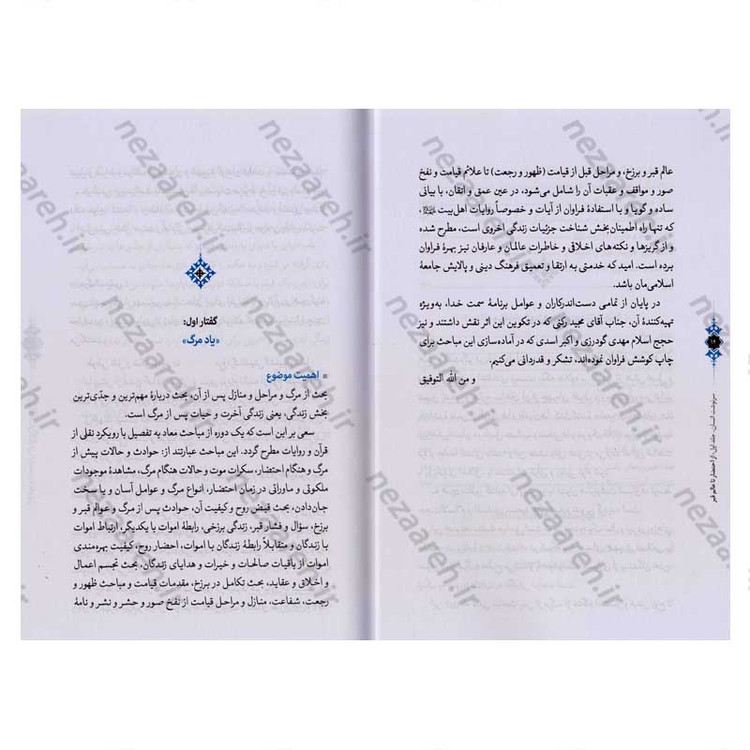 عالم قبر و برزخ، و مراحل قبل از قیامت (ظهور و رجعت) تا علائم قیامت و نفخ
صور و مواقف و عقبات آن را شامل می‌شود، در عین عمق و اتقان، با بیانی
ساده و گویا و با استفادهٔ فراوان از آیات و خصوصاً روایات اهل‌بیت ،
که تنها راه اطمینان‌بخش شناخت جزئیات زندگی اخروی است، مطرح شده
و از گریزها و نکته‌های اخلاقی و خاطرات عالمان و عارفان نیز بهرهٔ فراوان
برده است. امید که خدمتی به ارتقا و تعمیق فرهنگ دینی و پالایش جامعهٔ
اسلامی‌مان باشد.
در پایان از تمامی دست‌اندرکاران و عوامل برنامهٔ سمت خدا، به‌ویژه
تهیه‌کنندهٔ آن، جناب آقای مجید رکنی که در تکوین این اثر نقش داشتند و نیز
حجج اسلام مهدی گودرزی و اکبر اسدی که در آماده‌سازی این مباحث برای
چاپ کوشش فراوان نموده‌اند، تشکر و قدردانی می‌کنیم.
و من الله التوفیق
سرنوشت انسان، جلد اول: از احتضار تا عالم قبر
گفتار اول:
«یاد مرگ»
اهمیت موضوع
بحث از مرگ و مراحل و منازل پس از آن، بحث دربارهٔ مهم‌ترین و جدّی‌ترین
بخش زندگی، یعنی زندگی آخرت و حیات پس از مرگ است.
سعی بر این است که یک دوره از مباحث معاد به تفصیل با رویکرد نقلی از
قرآن و روایات مطرح گردد. این مباحث عبارتند از: حوادث و حالات پیش از
مرگ و هنگام احتضار، سکرات موت و حالات هنگام مرگ، مشاهدهٔ موجودات
ملکوتی و ماورائی در زمان احتضار، انواع مرگ و عوامل آسان و یا سخت
جان‌دادن، بحث قبض روح و کیفیت آن، حوادث پس از مرگ و عوالم قبر و
برزخ، سؤال و فشار قبر، زندگی برزخی، رابطهٔ اموات با یکدیگر، ارتباط اموات
با زندگان و متقابلاً رابطهٔ زندگان با اموات، احضار روح، کیفیت بهره‌مندی
اموات از باقیات صالحات و خیرات و هدایای زندگان، بحث تجسم اعمال
و اخلاق و عقاید، بحث تکامل در برزخ، مقدمات قیامت و مباحث ظهور و
رجعت، شفاعت، منازل و مراحل قیامت از نفخ صور و حشر و نشر و نامهٔ
nezaareh.ir